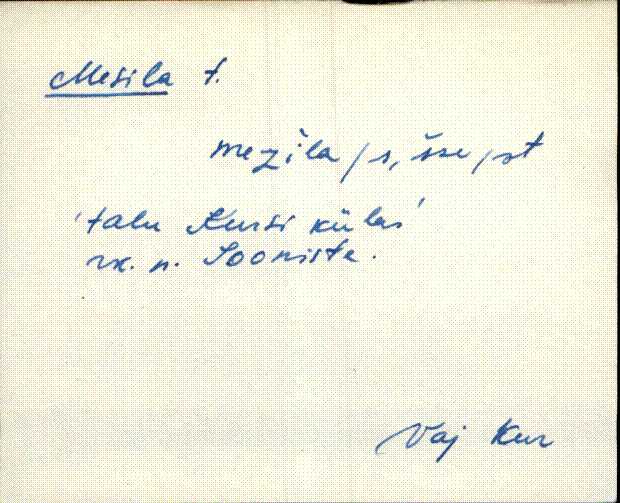 Mesila t.
mezila /s, šse /st
'talu Kursi külas'
rx. n. Soonista.
Vaj Kur